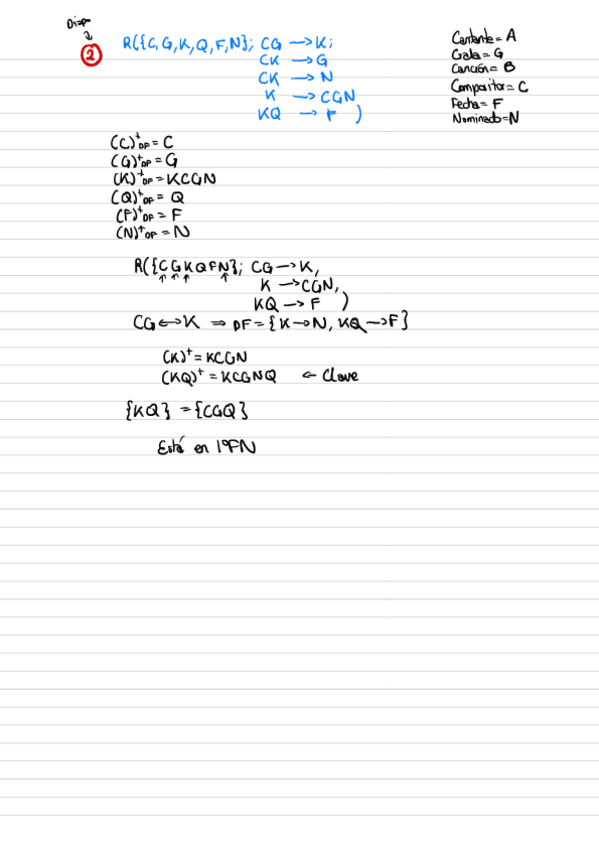 Diap
②
R({C,G,K,Q,F,N}; CG → K;
CK → G
CK → N
K → CGN
KQ → F )
Cantante = A
Gala = G
Canción = B
Compositor = C
Fecha = F
Nominado = N
(C)⁺DF = C
(G)⁺DF = G
(K)⁺DF = KCGN
(Q)⁺DF = Q
(F)⁺DF = F
(N)⁺DF = N
R({CGKQFN}; CG → K,
K → CGN,
KQ → F )
CG ↔ K ⇒ DF = {K → N, KQ → F}
(K)⁺ = KCGN
(KQ)⁺ = KCGNQ ← Clave
{KQ} = {CGQ}
Está en 1ºFN